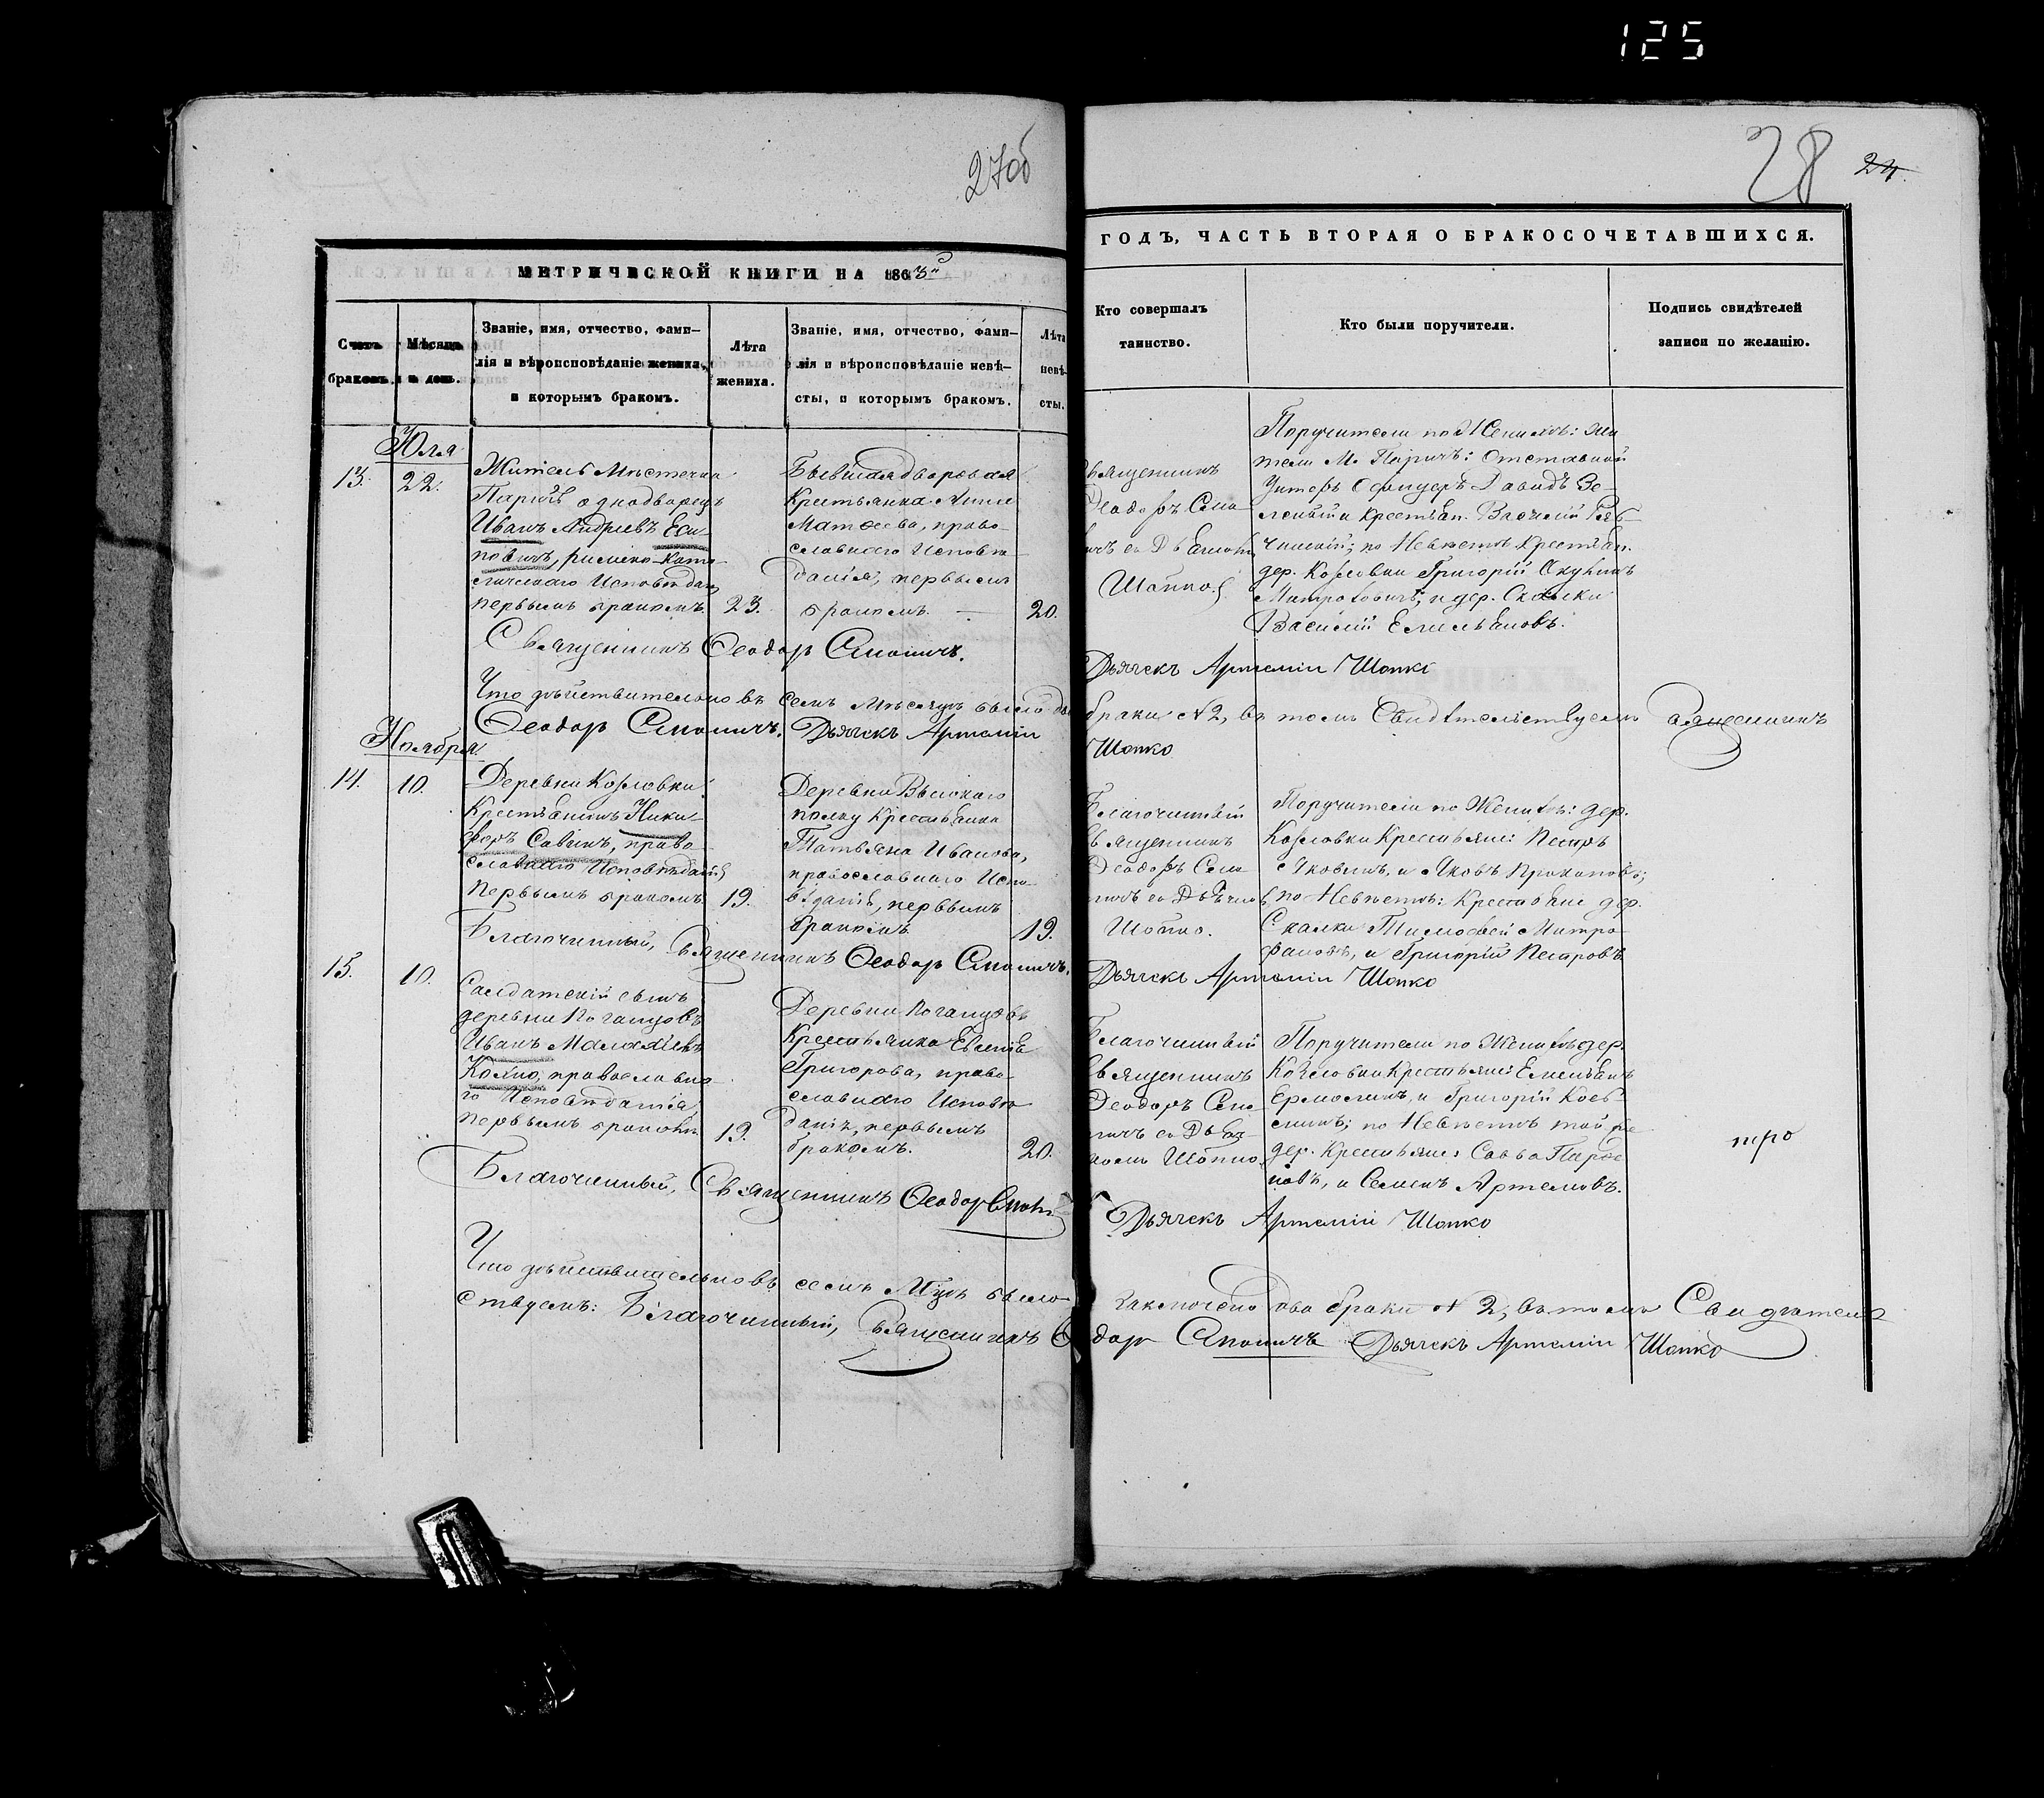 125
27об
28 24.
МЕТРИЧЕСКОЙ КНИГИ НА 1863й
ГОДЪ, ЧАСТЬ ВТОРАЯ О БРАКОСОЧЕТАВШИХСЯ.
Счетъ
браковъ.
Мѣсяцъ
и день.
Званіе, имя, отчество, фами-
лія и вѣроисповѣданіе жениха,
и которымъ бракомъ.
Лѣта
жениха.
Званіе, имя, отчество, фами-
лія и вѣроисповѣданіе невѣ-
сты, и которымъ бракомъ.
Лѣта
невѣ-
сты.
Кто совершалъ
таинство.
Кто были поручители.
Подпись свидѣтелей
записи по желанію.
Юля
13. 22.
Житель Мѣстечка
Паричъ однодворецъ
Иванъ Андріевъ Еси-
повичъ, римско-Като-
лическаго Исповѣдан.
первымъ бракомъ
23.
Бывшая дворовая
Крестьянка Анна
Матѳеева, право-
славнаго Исповѣ-
данія, первымъ
бракомъ. —
20.
Священникъ
Ѳеодоръ
Шопко
Поручители по Женихѣ: Жи-
тели М. Паричъ: Отставной
Унтеръ Офицеръ Давидъ Зе-
леный и Крестьян. Василій
по Невѣстѣ Крестьян.
дер. Козловки Григорій
и дер. Скалки
Василій Емельяновъ.
Священникъ Ѳеодор
Дьячекъ Артемій Шопко
Что дѣйствительно въ семъ Мѣсяцѣ было два
брака № 2, въ томъ Свидѣтельствуемъ Священникъ
Ѳеодор Дьячекъ Артемій
Шопко
Ноября
14. 10.
Деревни Козловки
Крестьянинъ Ники-
форъ Савинъ, право-
славнаго Исповѣданія
первымъ бракомъ
19.
Деревни Высокаго
полку Крестьянка
Татьяна Иванова,
православнаго Испо-
вѣданія, первымъ
бракомъ
19.
Благочинный
Священникъ
Ѳеодоръ
Шопко.
Поручители по Женихѣ: дер.
Козловки Крестьяне: Петръ
Яковинъ, и Яковъ Прокоповъ;
по Невѣстѣ: Крестьяне дер.
Скалки Тимоѳей Митро-
фановъ, и Григорій Петровъ
Благочинный, Священникъ Ѳеодор
Дьячекъ Артемій Шопко
15. 10.
Солдатскій сынъ
деревни Поганцовъ
Иванъ Малахіевъ
Кохно, православна-
го Исповѣданія,
первымъ бракомъ
19.
Деревни Поганцовъ
Крестьянка Евгенія
Григорова, право-
славнаго Исповѣ-
данія, первымъ
бракомъ.
20.
Благочинный
Священникъ
Ѳеодоръ
Шопко
Поручители по Женихѣ дер.
Козловки Крестьяне: Емельянъ
и Григорій
по Невѣстѣ той же
дер. Крестьяне: Савва
и Семенъ Артемовъ.
Благочинный, Священникъ Ѳеодор
Дьячекъ Артемій Шопко
Что дѣйствительно въ семъ Мцѣ было
заключено два брака № 2, въ томъ Свидѣтель-
ствуемъ: Благочинный, Священникъ Ѳеодор
Дьячекъ Артемій Шопко